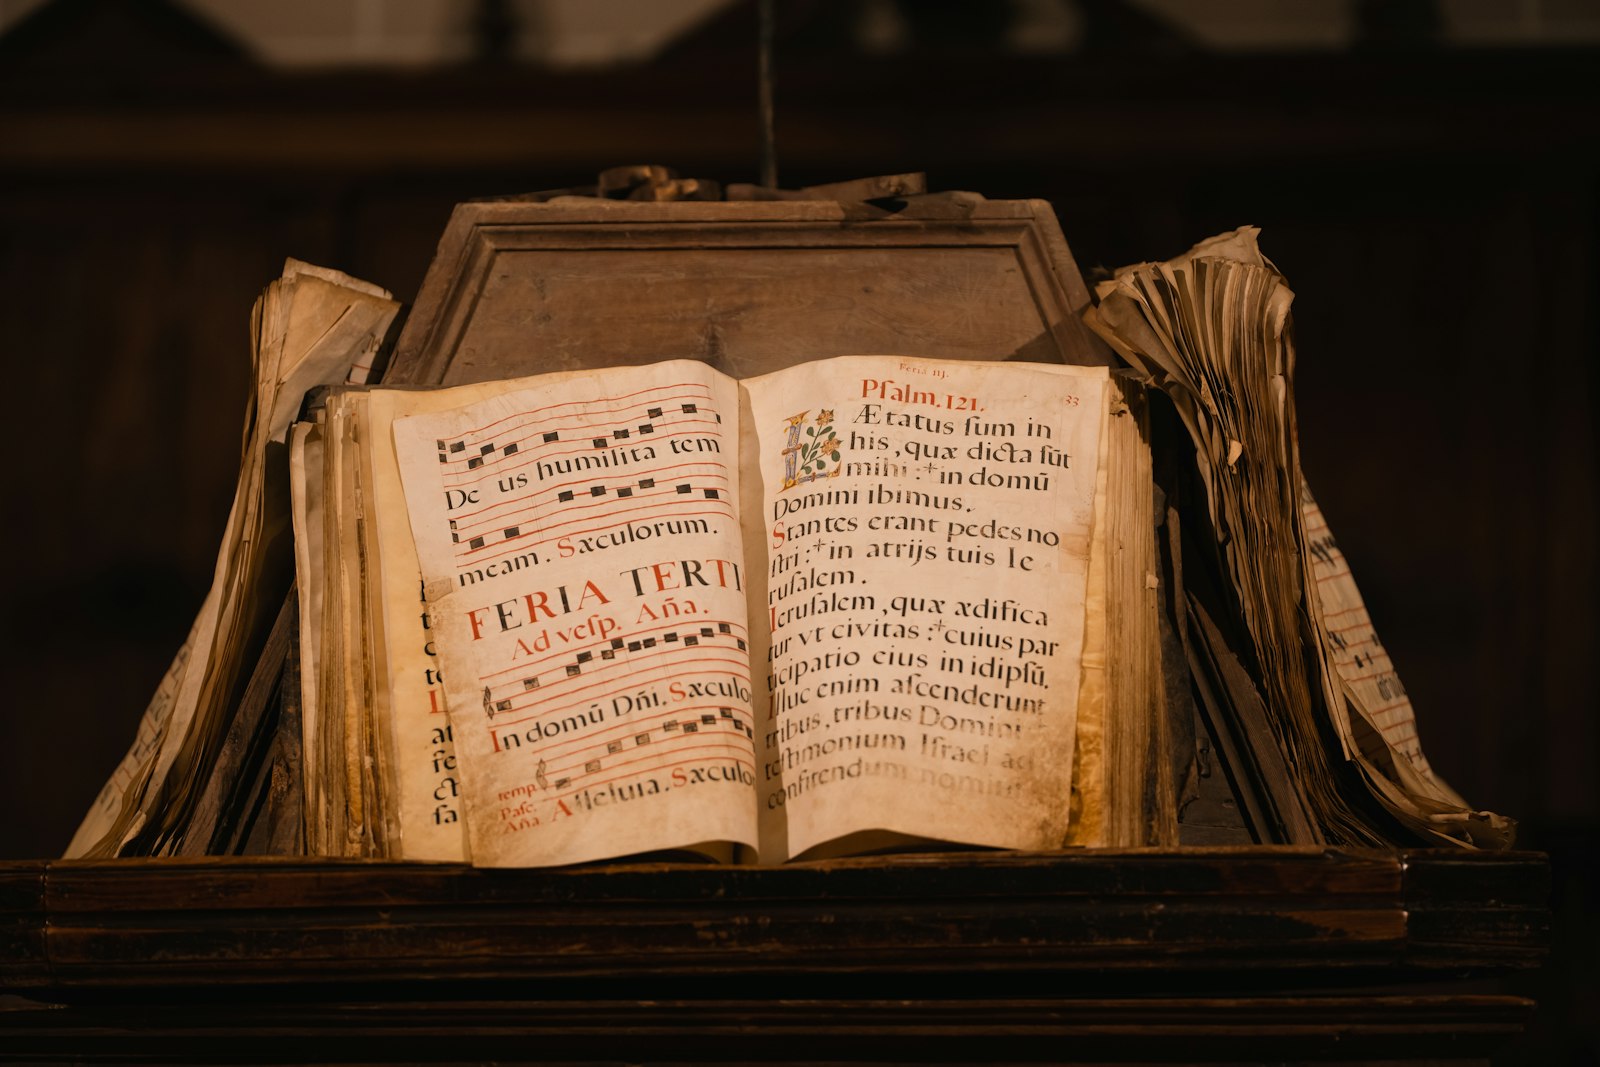 De us humilita tem
meam. Sæculorum.
FERIA TERTI
Ad vesp. Aña.
In domū Dñi. Sæculo
temp.
Pasc.
Aña Alleluia. Sæculo
Feria iij.
33
Psalm. 121.
LÆtatus ſum in
his, quæ dicta ſūt
mihi :* in domū
Domini ibimus.
Stantes erant pedes no
ſtri :* in atrijs tuis Ie
ruſalem.
Ieruſalem, quæ ædifica
tur vt civitas :* cuius par
ticipatio eius in idipſū.
Illuc enim aſcenderunt
tribus, tribus Domini
teſtimonium Iſrael ad
confitendum nomini